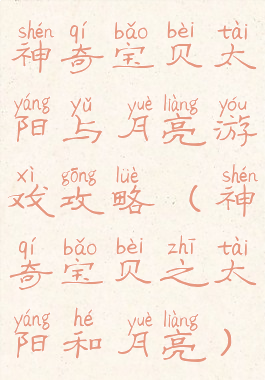 shén qí bǎo bèi tài
神奇宝贝太
yáng yǔ yuè liàng yóu
阳与月亮游
xì gōng lüè shén
戏攻略（神
qí bǎo bèi zhī tài
奇宝贝之太
yáng hé yuè liàng
阳和月亮）